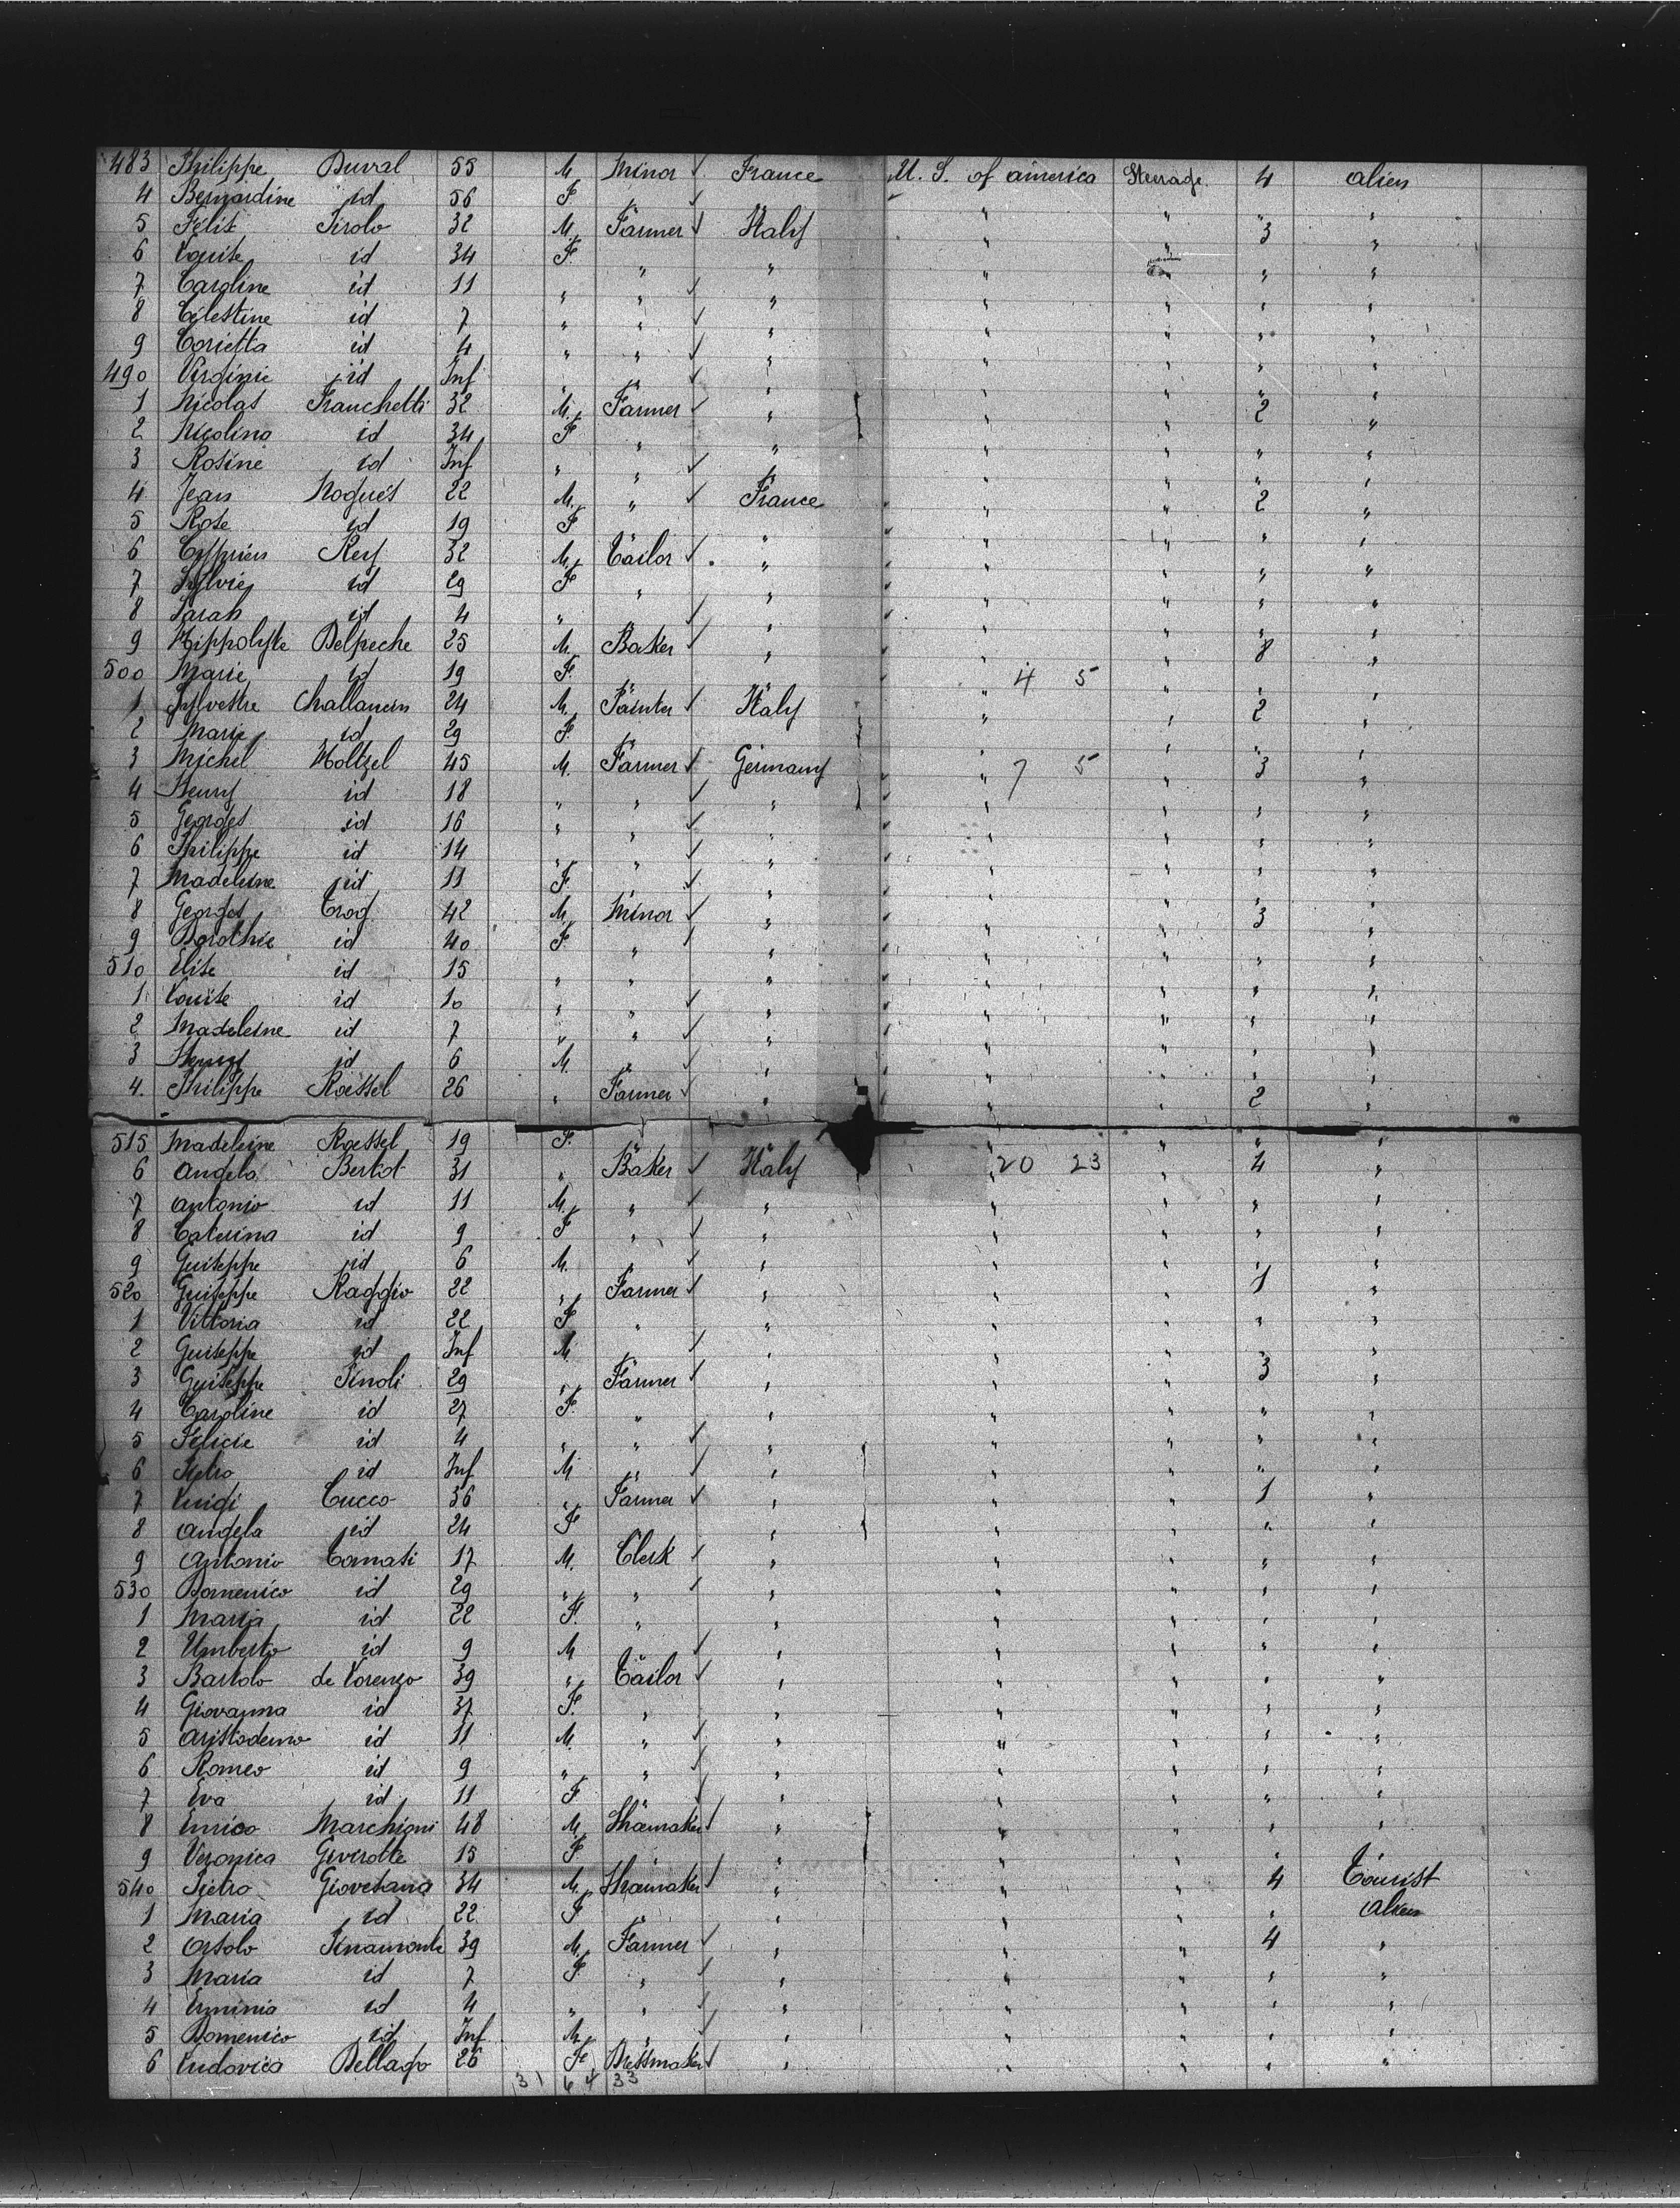 483 Philippe Duval 55 M Minor ✓ France U. S. of america Steerage 4 alien
4 Bernardine id 56 F " ✓ " " " "
5 Félix Tirolo 32 M. Farmer ✓ Italy " " 3 "
6 Louise id 34 F. " " " " " "
7 Caroline id 11 " " ✓ " " " " "
8 Célestine id 7 " " ✓ " " " " "
9 Corietta id 4 " " ✓ " " " " "
490 Virginie id Inf " " ✓ " " " " "
1 Nicolas Franchetti 32 M. Farmer ✓ " " " 2 "
2 Nicolina id 34 F " " " " " "
3 Rosine id Inf " " ✓ " " " " "
4 Jean Nogués 22 M. " ✓ France " " 2 "
5 Rose id 19 F " " " " "
6 Cyprien Rey 32 M. Tailor ✓ " " " " "
7 Sylvie id 29 F " " " " " "
8 Sarah id 4 " " ✓ " " " " "
9 Hippolyte Delpeche 25 M. Baker ✓ " " " 8 "
500 Marie id 19 F. " " " 4 5 " " "
1 Sylvestre Challancin 24 M. Painter ✓ Italy " " 2 "
2 Marie id 29 F. " " " " "
3 Michel Holtzel 45 M. Farmer ✓ Germany " 7 5 " 3 "
4 Henry id 18 " " ✓ " " " " "
5 Georges id 16 " " ✓ " " " " "
6 Philippe id 14 " " ✓ " " " " "
7 Madeleine id 11 F. " ✓ " " " " "
8 Georges Trog 42 M. Minor ✓ " " " 3 "
9 Dorothie id 40 F. " ✓ " " " " "
510 Elise id 15 " " " " " " "
1 Louise id 10 " " ✓ " " " " "
2 Madeleine id 7 " " ✓ " " " " "
3 Henry id 6 M. " ✓ " " " " "
4. Philippe Roessel 26 " Farmer ✓ " " " 2 "
515 Madeleine Roessel 19 F. " " " " "
6 Angela Bertot 31 " Baker ✓ Italy " 20 23 " 4 "
7 Antonio id 11 M. " ✓ " " " " "
8 Caterina id 9 F " ✓ " " " " "
9 Guiseppe id 6 M. " ✓ " " " " "
520 Guiseppe Raggio 22 " Farmer ✓ " " " 1 "
1 Vittoria id 22 F " " " " " "
2 Guiseppe id Inf M. " ✓ " " " " "
3 Guiseppe Pinoli 29 " Farmer ✓ " " " 3 "
4 Caroline id 27 F. " " " " " "
5 Félicie id 4 " " ✓ " " " " "
6 Pietro id Inf M " ✓ " " " " "
7 Luigi Cucco 36 " Farmer ✓ " " " 1 "
8 Angela id 24 F " " " " " "
9 Antonio Comati 17 M. Clerk ✓ " " " " "
530 Domenico id 29 " " ✓ " " " " "
1 Maria id 22 F. " " " " " "
2 Umberto id 9 M " ✓ " " " " "
3 Bartolo de Lorenzo 39 " Tailor ✓ " " " " "
4 Giovanna id 37 F. " " " " " "
5 Aristodemo id 11 M. " ✓ " " " " "
6 Romeo id 9 " " ✓ " " " " "
7 Eva id 11 F " ✓ " " " " "
8 Enrico Marchigni 48 M. Shoemaker ✓ " " " " "
9 Veronica Givirotte 15 F " " " " " "
540 Pietro Giovetana 34 M. Shoemaker ✓ " " " 4 Tourist
1 Maria id 22 F " " " " " Alien
2 Ortolo Pinamonte 39 M. Farmer ✓ " " " 4 "
3 Maria id 7 F. " ✓ " " " " "
4 Erminia id 4 " " ✓ " " " " "
5 Domenico id Inf M. " ✓ " " " " "
6 Ludovica Bellago 26 F. Dressmaker ✓ " " " " "
31 64 33